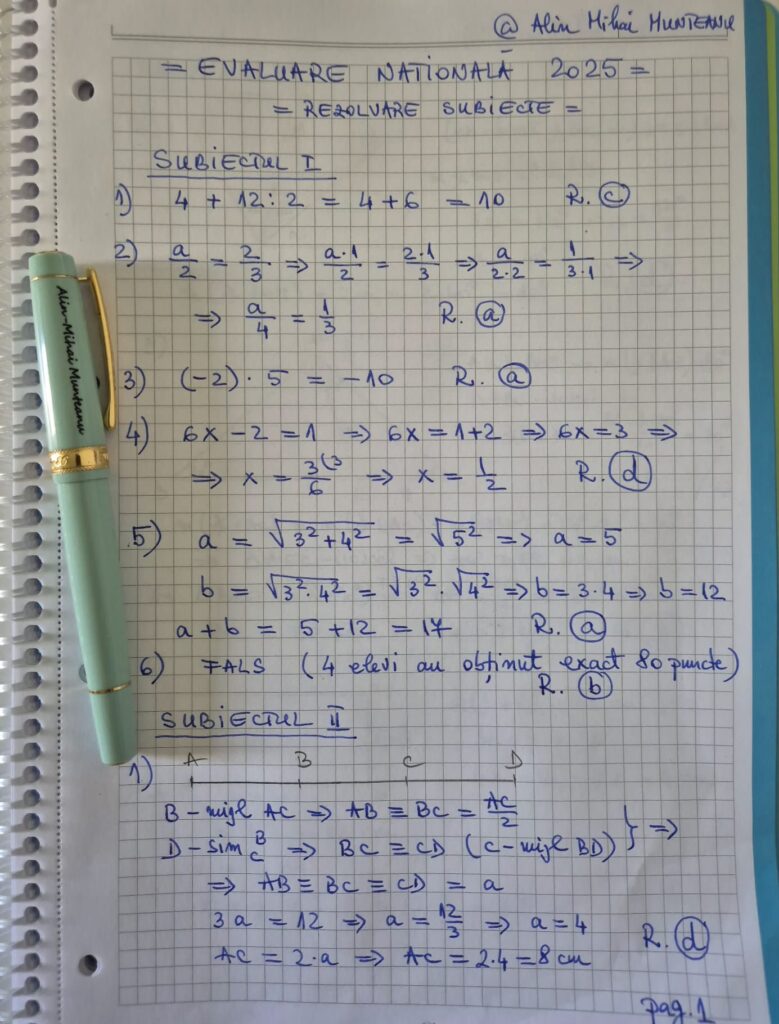 @ Alin Mihai MUNTEANU
= EVALUARE NATIONALĂ 2025 =
= REZOLVARE SUBIECTE =
SUBIECTUL I
1) 4 + 12 : 2 = 4 + 6 = 10 R. c
2) a/2 = 2/3 => a·1/2 = 2·1/3 => a/2·2 = 1/3·1 =>
=> a/4 = 1/3 R. a
3) (-2) · 5 = -10 R. a
4) 6x - 2 = 1 => 6x = 1+2 => 6x = 3 =>
=> x = 3/6 (3 => x = 1/2 R. d
5) a = √(3²+4²) = √5² => a = 5
b = √(3²·4²) = √3² · √4² => b = 3·4 => b = 12
a + b = 5 + 12 = 17 R. a
6) FALS (4 elevi au obținut exact 80 puncte)
R. b
SUBIECTUL II
1) A B C D
B - mijl AC => AB ≡ BC = AC/2
D - sim B C => BC ≡ CD (C - mijl BD) } =>
=> AB ≡ BC ≡ CD = a
3a = 12 => a = 12/3 => a = 4
AC = 2·a => AC = 2·4 = 8 cm R. d
pag. 1
Alin-Mihai Munteanu